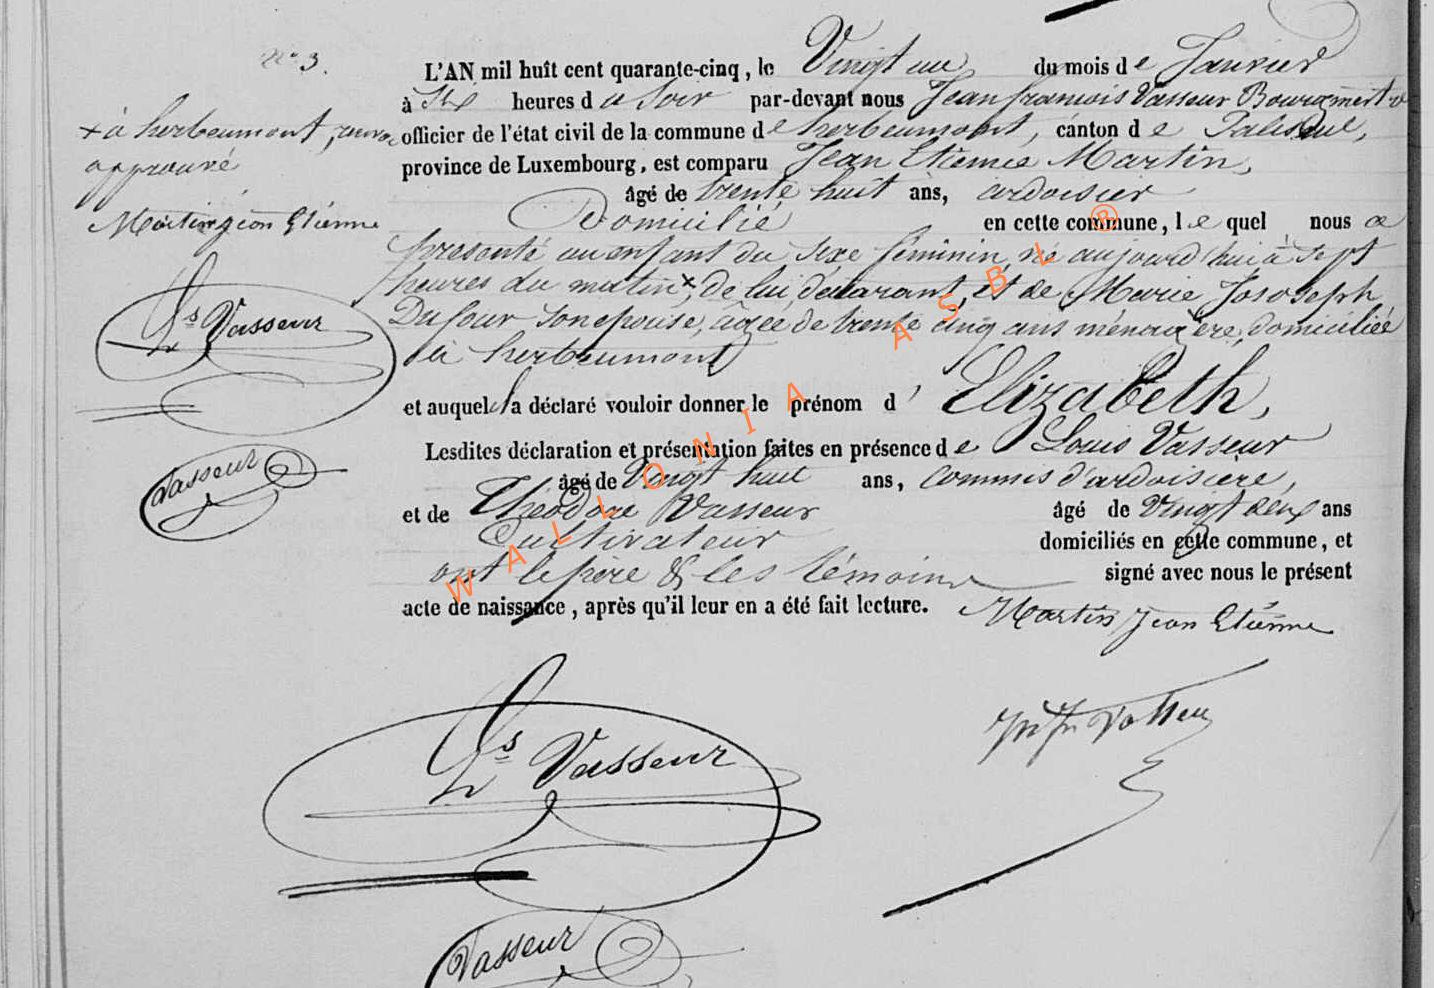 N° 3.
L'AN mil huit cent quarante-cinq, le Vingt un du mois de Janvier
à Six heures du Soir par-devant nous Jean françois Vasseur Bourgmestre
officier de l'état civil de la commune de herbeumont, canton de Paliseul,
province de Luxembourg, est comparu Jean Etienne Martin,
âgé de trente huit ans, ardoisier
Domicilié en cette commune, lequel nous a
présenté un enfant du sexe féminin, né aujourd'hui à sept
heures du matin + de lui déclarant, et de Marie Jososeph
Dufour son epouse, agée de trente cinq ans ménagère, domiciliée
à herbeumont
et auquel il a déclaré vouloir donner le prénom d' Elizabeth,
Lesdites déclaration et présentation faites en présence de Louis Vasseur
âgé de Vingt huit ans, commis d'ardoisière,
et de Théodore Vasseur âgé de Vingt deux ans
Cultivateur domiciliés en cette commune, et
ont le père & les témoins signé avec nous le présent
acte de naissance, après qu'il leur en a été fait lecture. Martin Jean Etienne
+ à herbeumont,
approuvé
Martin jean Etienne
Ls Vasseur
Vasseur
Ls Vasseur
Vasseur
Vasseur
WALLONIA ASBL ®